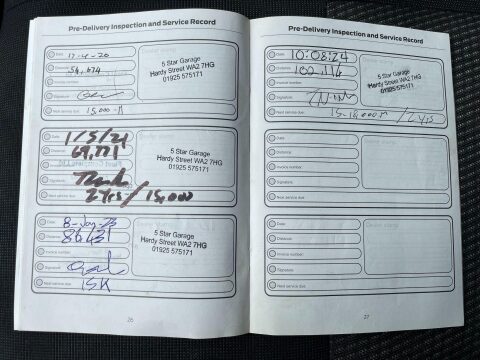 Pre-Delivery Inspection and Service Record
Date
17-4-20
Distance
54,674
Invoice number
Signature
Next service due
15,000
5 Star Garage
Hardy Street WA2 7HG
01925 575171
Date
1/5/21
Distance
69,771
Signature
Next service due
2 yrs / 15,000
5 Star Garage
Hardy Street WA2 7HG
01925 575171
Date
8-Jan 23
Distance
Invoice number
Signature
Next service due
15K
5 Star Garage
Hardy Street WA2 7HG
01925 575171
26
Pre-Delivery Inspection and Service Record
Date
10:08:24
Distance
100,114
Invoice number
Signature
Next service due
/ 2 yrs
5 Star Garage
Hardy Street WA2 7HG
01925 575171
Date
Distance
Invoice number
Signature
Next service due
Date
Distance
Invoice number
Signature
Next service due
27